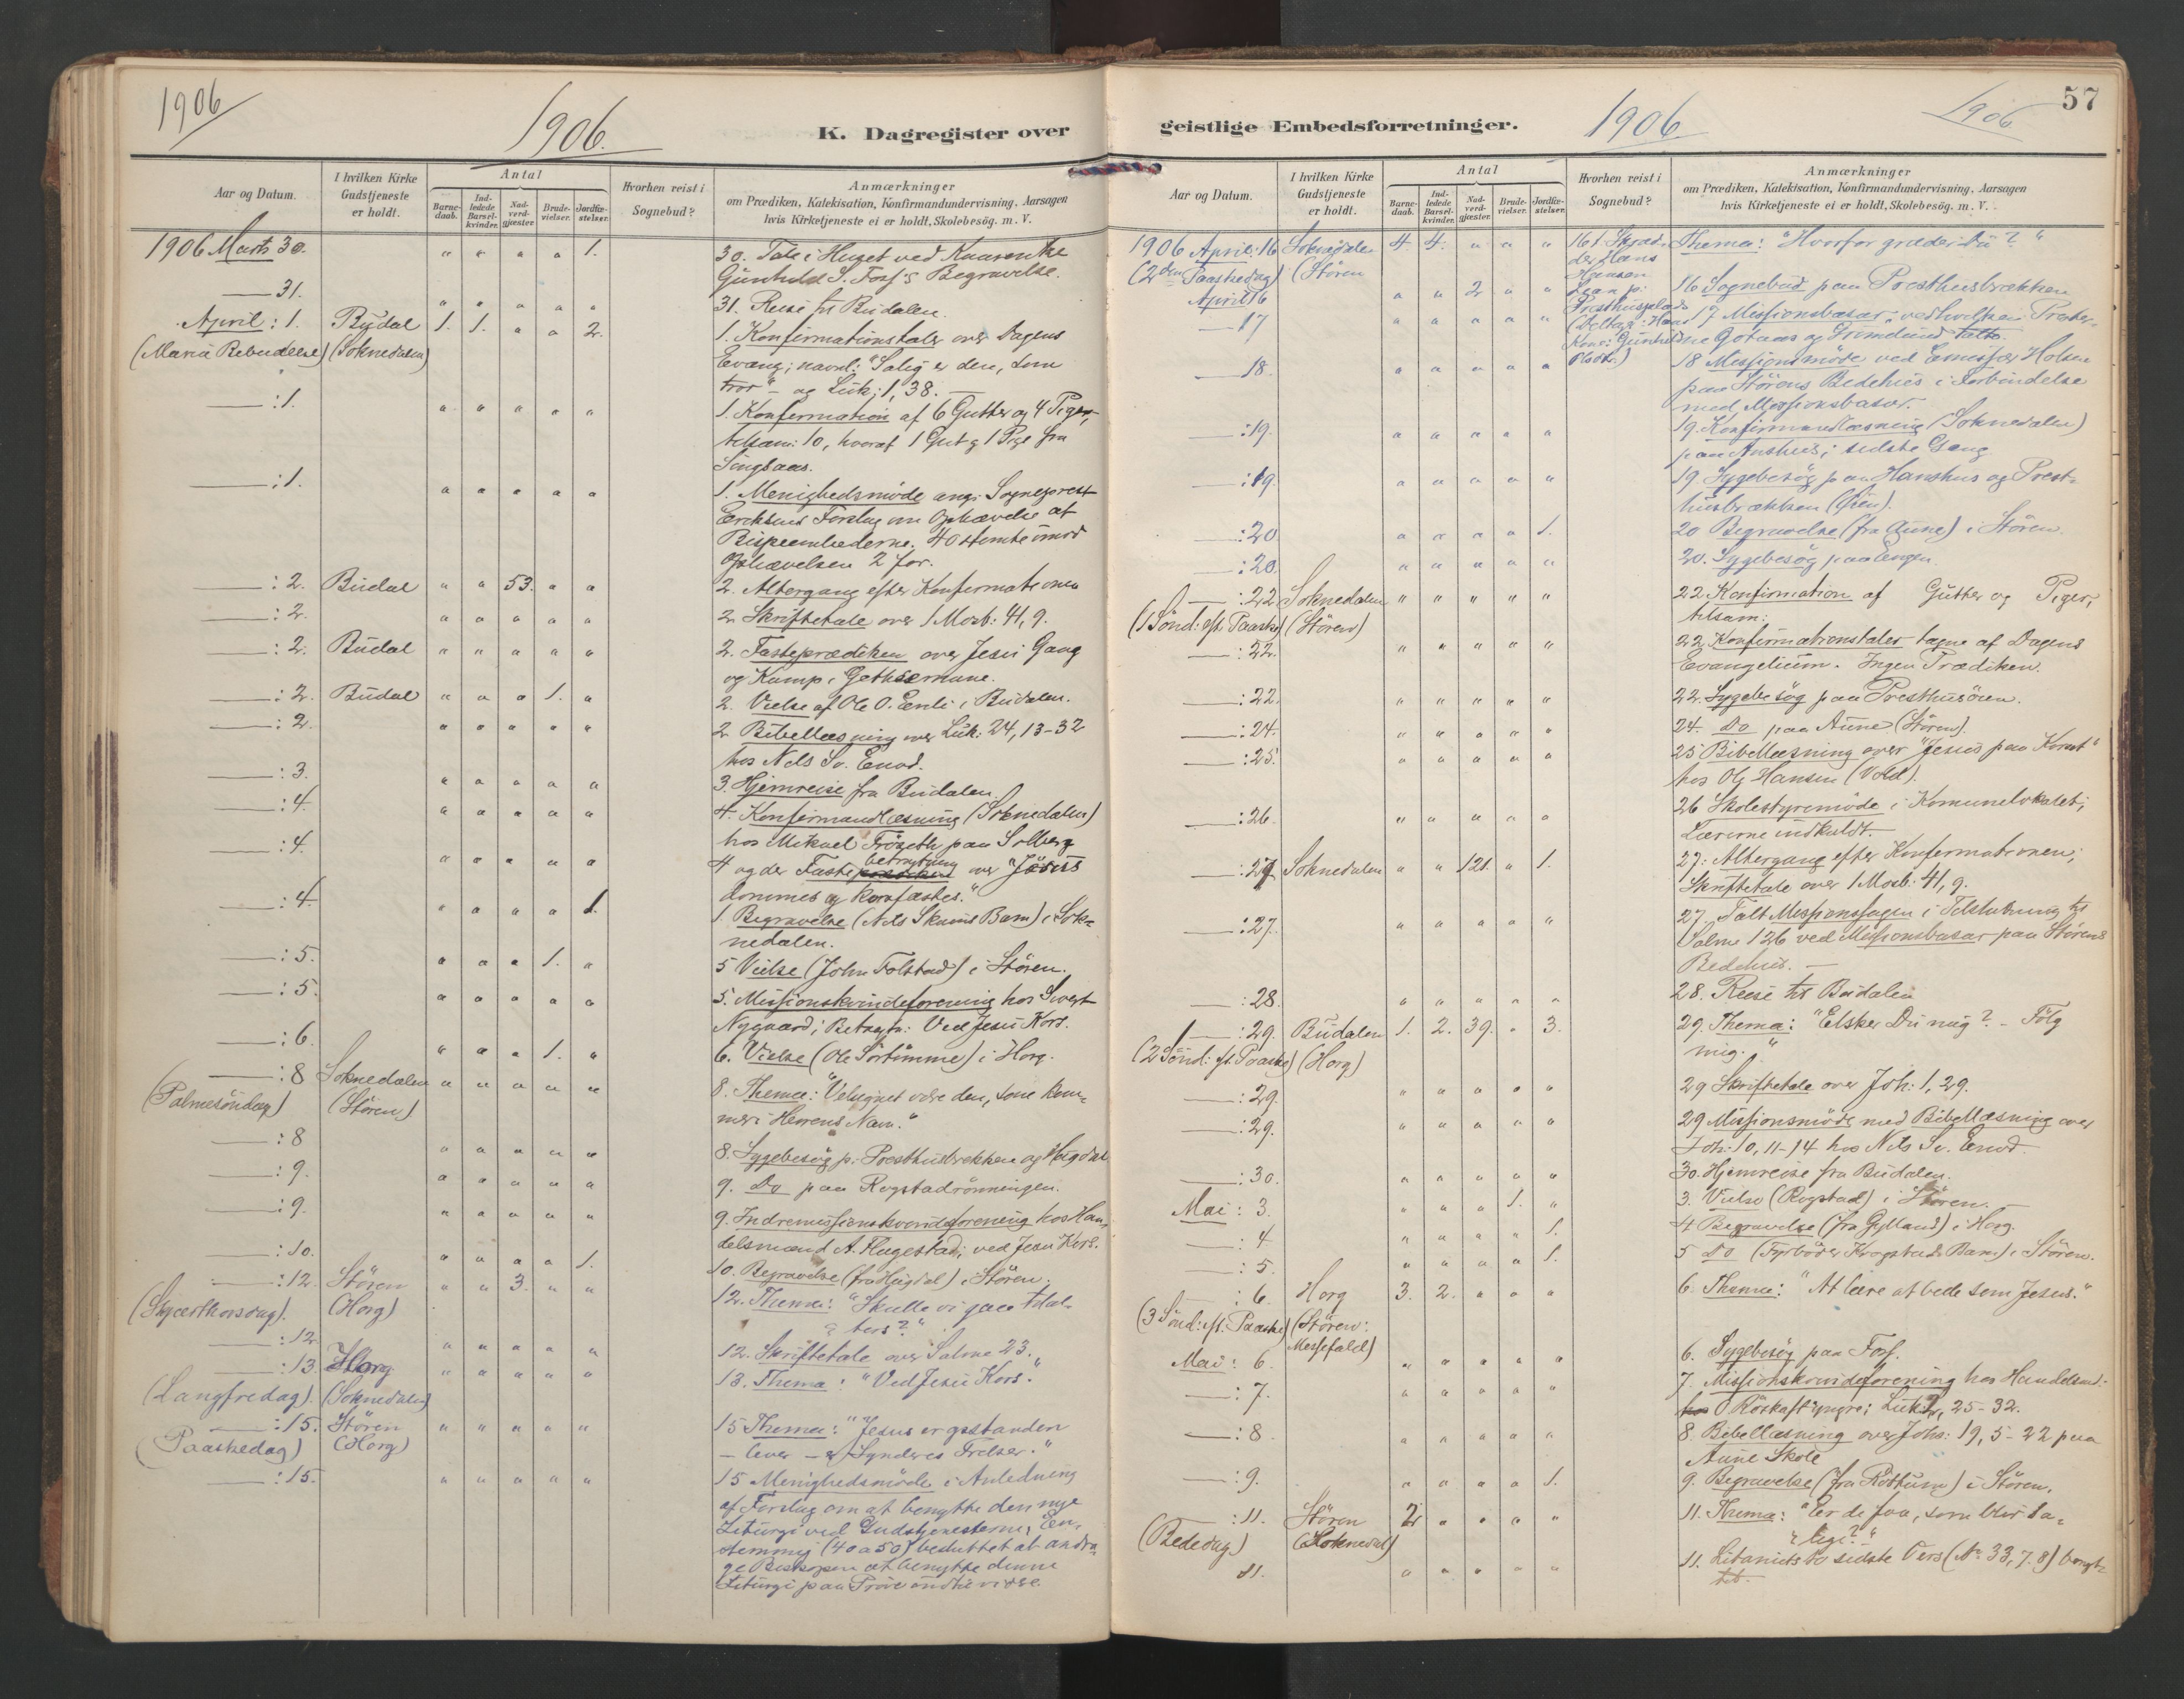 1906
1906.
K. Dagregister over
Aar og Datum.
I hvilken Kirke Gudstjeneste er holdt.
Antal
Barne-daab.
Ind-ledede Barsel-kvinder.
Nad-verd-gjæster.
Brude-vielser.
Jordfæ-stelser.
Hvorhen reist i Sognebud?
Anmærkninger
om Prædiken, Katekisation, Konfirmandundervisning, Aarsagen
hvis Kirketjeneste ei er holdt, Skolebesög. m. V.
1906 Marts 30. " " " " 1. 30. Tale i Huset ved
Begravelse.
31. " " " " " 31. Reise til Budalen.
April: 1. Budal 1. 1. " " 2. 1. Konfirmationstaler over Dagens
(Mariæ Bebudelse) (Soknedalen) Evang; navnl: "Salig er den, som
tror" - og Luk: 1, 38. -
: 1. " " " " " 1. Konfirmation af 6 Gutter og 4 Piger,
tilsam: 10, hvoraf 1 Gut og 1 Pige fra
Singsaas.
: 1. " " " " " 1. Menighedsmöde ang: Sogneprest
Erksens Forslag om Ophævelse af
Bispeembederne. 40 stemte imod
Ophævelsen 2 for.
: 2. Budal " " 53. " " 2. Altergang efter Konfirmationen
: 2. " " " " " 2. Skriftetale over 1 Mosb: 41, 9.
: 2. Budal " " " " " 2. Fasteprædiken over Jesu Gang
og Kamp i Gethsemane.
: 2. Budal " " " 1. " 2. Vielse af Ole O. Enli i Budalen.
: 2. " " " " " 2. Bibellæsning over Luk: 24, 13-32
hos Nils Sv. Enod.
: 3. " " " " " 3. Hjemreise fra Budalen.
: 4. " " " " " 4. Konfirmandlæsning (Soknedalen)
hos Mikael Fröseth paa Solberg
: 4. " " " " " 4 og der Fastebetragtning over "Jesus
dommes og korsfæstes."
: 4. " " " " 1. 1. Begravelse (Nils Barn) i Sok-
nedalen.
: 5. " " " 1. " 5 Vielse (John Folstad) i Stören.
: 5. " " " " " 5. Missionskvindeforening hos Sivert
Nygaard; Betragtn: Ved Jesu Kors.
: 6. " " " 1. " 6. Vielse (Ole Sörtömme) i Horg.
: 8 Soknedalen " " " " " 8. Thema: "Velsignet være den, som kom-
(Palmesöndag) (Stören) mer i Herrens Navn."
: 8 " " " " " 8. Sygebesög p: Presthusbrekken og Hegdal
: 9. " " " " " 9. Do paa Rogstadrönningen.
: 9. " " " " " 9. Indremissionskvindeforening hos Han-
delsmand A. Hugestad; ved Jesu Kors.
: 10. " " " " 1. 10. Begravelse (fra Hegdal) i Stören.
: 12. Stören " " 3. " " 12. Thema: "Skulle vi gaa tilal-
(Skjærthorsdag). (Horg) ters?"
: 12 " " " " " 12. Skriftetale over Salme 23.
: 13. Horg " " " " " 13. Thema: "Ved Jesu Kors."
(Langfredag). (Soknedalen)
: 15. Stören " " " " " 15 Thema: "Jesus er opstanden
(Paaskedag) (Horg) - lever - er Synderes Frelser."
: 15. " " " " " 15 Menighedsmöde i Anledning
af Forslag om at benytte den nye
Liturgi ved Gudstjenesterne; En-
stemmig (40 a 50) besluttet at andra-
ge Biskopen at benytte denne
Liturgi paa Pröve indtil videre.
geistlige Embedsforretninger.
1906
1906
57
Aar og Datum.
I hvilken Kirke Gudstjeneste er holdt.
Antal
Barne-daab.
Ind-ledede Barsel-kvinder.
Nad-verd-gjæster.
Brude-vielser.
Jordfæ-stelser.
Hvorhen reist i Sognebud?
Anmærkninger
om Prædiken, Katekisation, Konfirmandundervisning, Aarsagen
hvis Kirketjeneste ei er holdt, Skolebesög. m. V.
1906 April: 16 Soknedalen 4. 4. " " " Thema: "Hvorfor græder Du?"
(2den Paaskedag) (Stören Hans Hansen
April 16 " " 2 " " 16 Sognebud paa Presthusbrækken
17 " " " " " 17 Missionsbasar; ved hvilken Præster-
ne Gotaas og Grimelund talte.
18. " " " " " 18 Missionsmöde ved Emissær Holum
paa Störens Bedehus i Forbindelse
med Missionsbasar.
: 19. " " " " " 19. Konfirmandlæsning (Soknedalen)
paa Anshus; sidste Gang.
: 19. " " " " " 19. Sygebesög paa Hanshus og Prest-
husbrækken (Öien).
: 20 " " " " 1. 20 Begravelse (fra Aune) i Stören.
: 20. " " " " " 20. Sygebesög paa Engen.
: 22 Soknedalen " " " " " 22. Konfirmation af Gutter og Piger,
(1 Sönd: eft. Paaske) (Stören) tilsam:
: 22. " " " " " 22. Konfirmationstaler tagne af Dagens
Evangelium. Ingen Prædiken.
: 22. " " " " " 22. Sygebesög paa Presthusöien.
: 24. " " " " " 24. Do paa Aune (Stören).
: 25. " " " " " 25 Bibellæsning over "Jesus paa Korset"
hos Ole Hansen (Vold).
: 26. " " " " " 26 Skolestyremöde i Komunelokalet;
Lærerne indkaldt.
: 27 Soknedalen " " 121. " 1. 27: Altergang efter Konfirmationen;
Skriftetale over 1 Mosb: 41, 9.
: 27. " " " " " 27. Talt Missionssagen i Tilslutning til
Salme 126 ved Missionsbasar paa Störens
Bedehus. -
: 28. " " " " " 28. Reise til Budalen
: 29. Budalen 1. 2. 39. " 3. 29. Thema: "Elsker Du mig? - Fölg
(2 Sönd: eft. Paaske) (Horg) mig."
: 29. " " " " " 29 Skriftetale over Joh: 1, 29.
: 29. " " " " " 29 Missionsmöde med Bibellæsning over
Joh: 10, 11-14 hos Nils Sv. Enod.
: 30. " " " " " 30. Hjemreise fra Budalen.
Mai: 3. " " " 1. " 3. Vielse (Rogstad) i Stören.
: 4 " " " " 1. 4 Begravelse (fra Gylland) i Horg.
: 5. " " " " 1. 5 Do (Fyrböder Krogstads Barn) i Stören.
: 6. Horg 3. 2. " " " 6. Thema: "At lære at bede som Jesus."
(3 Sönd: eft. Paaske) (Stören: Messefald)
Mai: 6. " " " " " 6. Sygebesög paa Fosf.
: 7. " " " " " 7. Missionskvindeforening hos Handelsm:
O Röskaft yngre; Luk 2, 25-32.
: 8. " " " " " 8. Bibellæsning over Johs: 19, 5-22 paa
Aune Skole
: 9. " " " " 1. 9. Begravelse (fra Rottum) i Stören.
: 11. Stören 2 " " " " 11. Thema: "Er de faa, som blir sa-
(Bededag) (Soknedal) lige?"
11. " " " " " 11. Litaniets to sidste Vers (No 33, 7. 8)